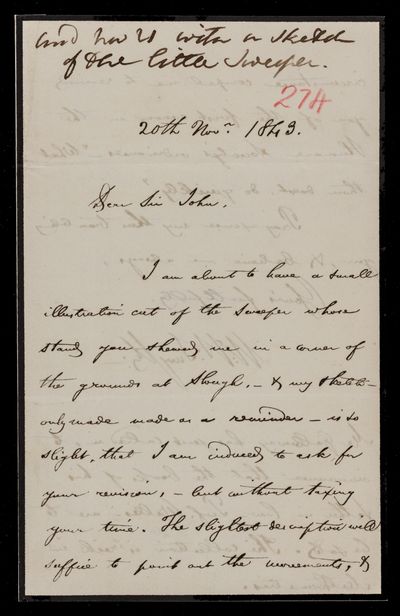 and No 21 with a sketch
of the little Sweeper.
274
20th Novr. 1843.
Dear Sir John,
I am about to have a small
illustration cut of the Sweeper whose
stand you shewed me in a corner of
the grounds at Slough, - & my sketch -
only made made as a reminder - is so
slight, that I am induced to ask for
your revision, - but without taxing
your time. The slightest description will
suffice to point out the movements, &